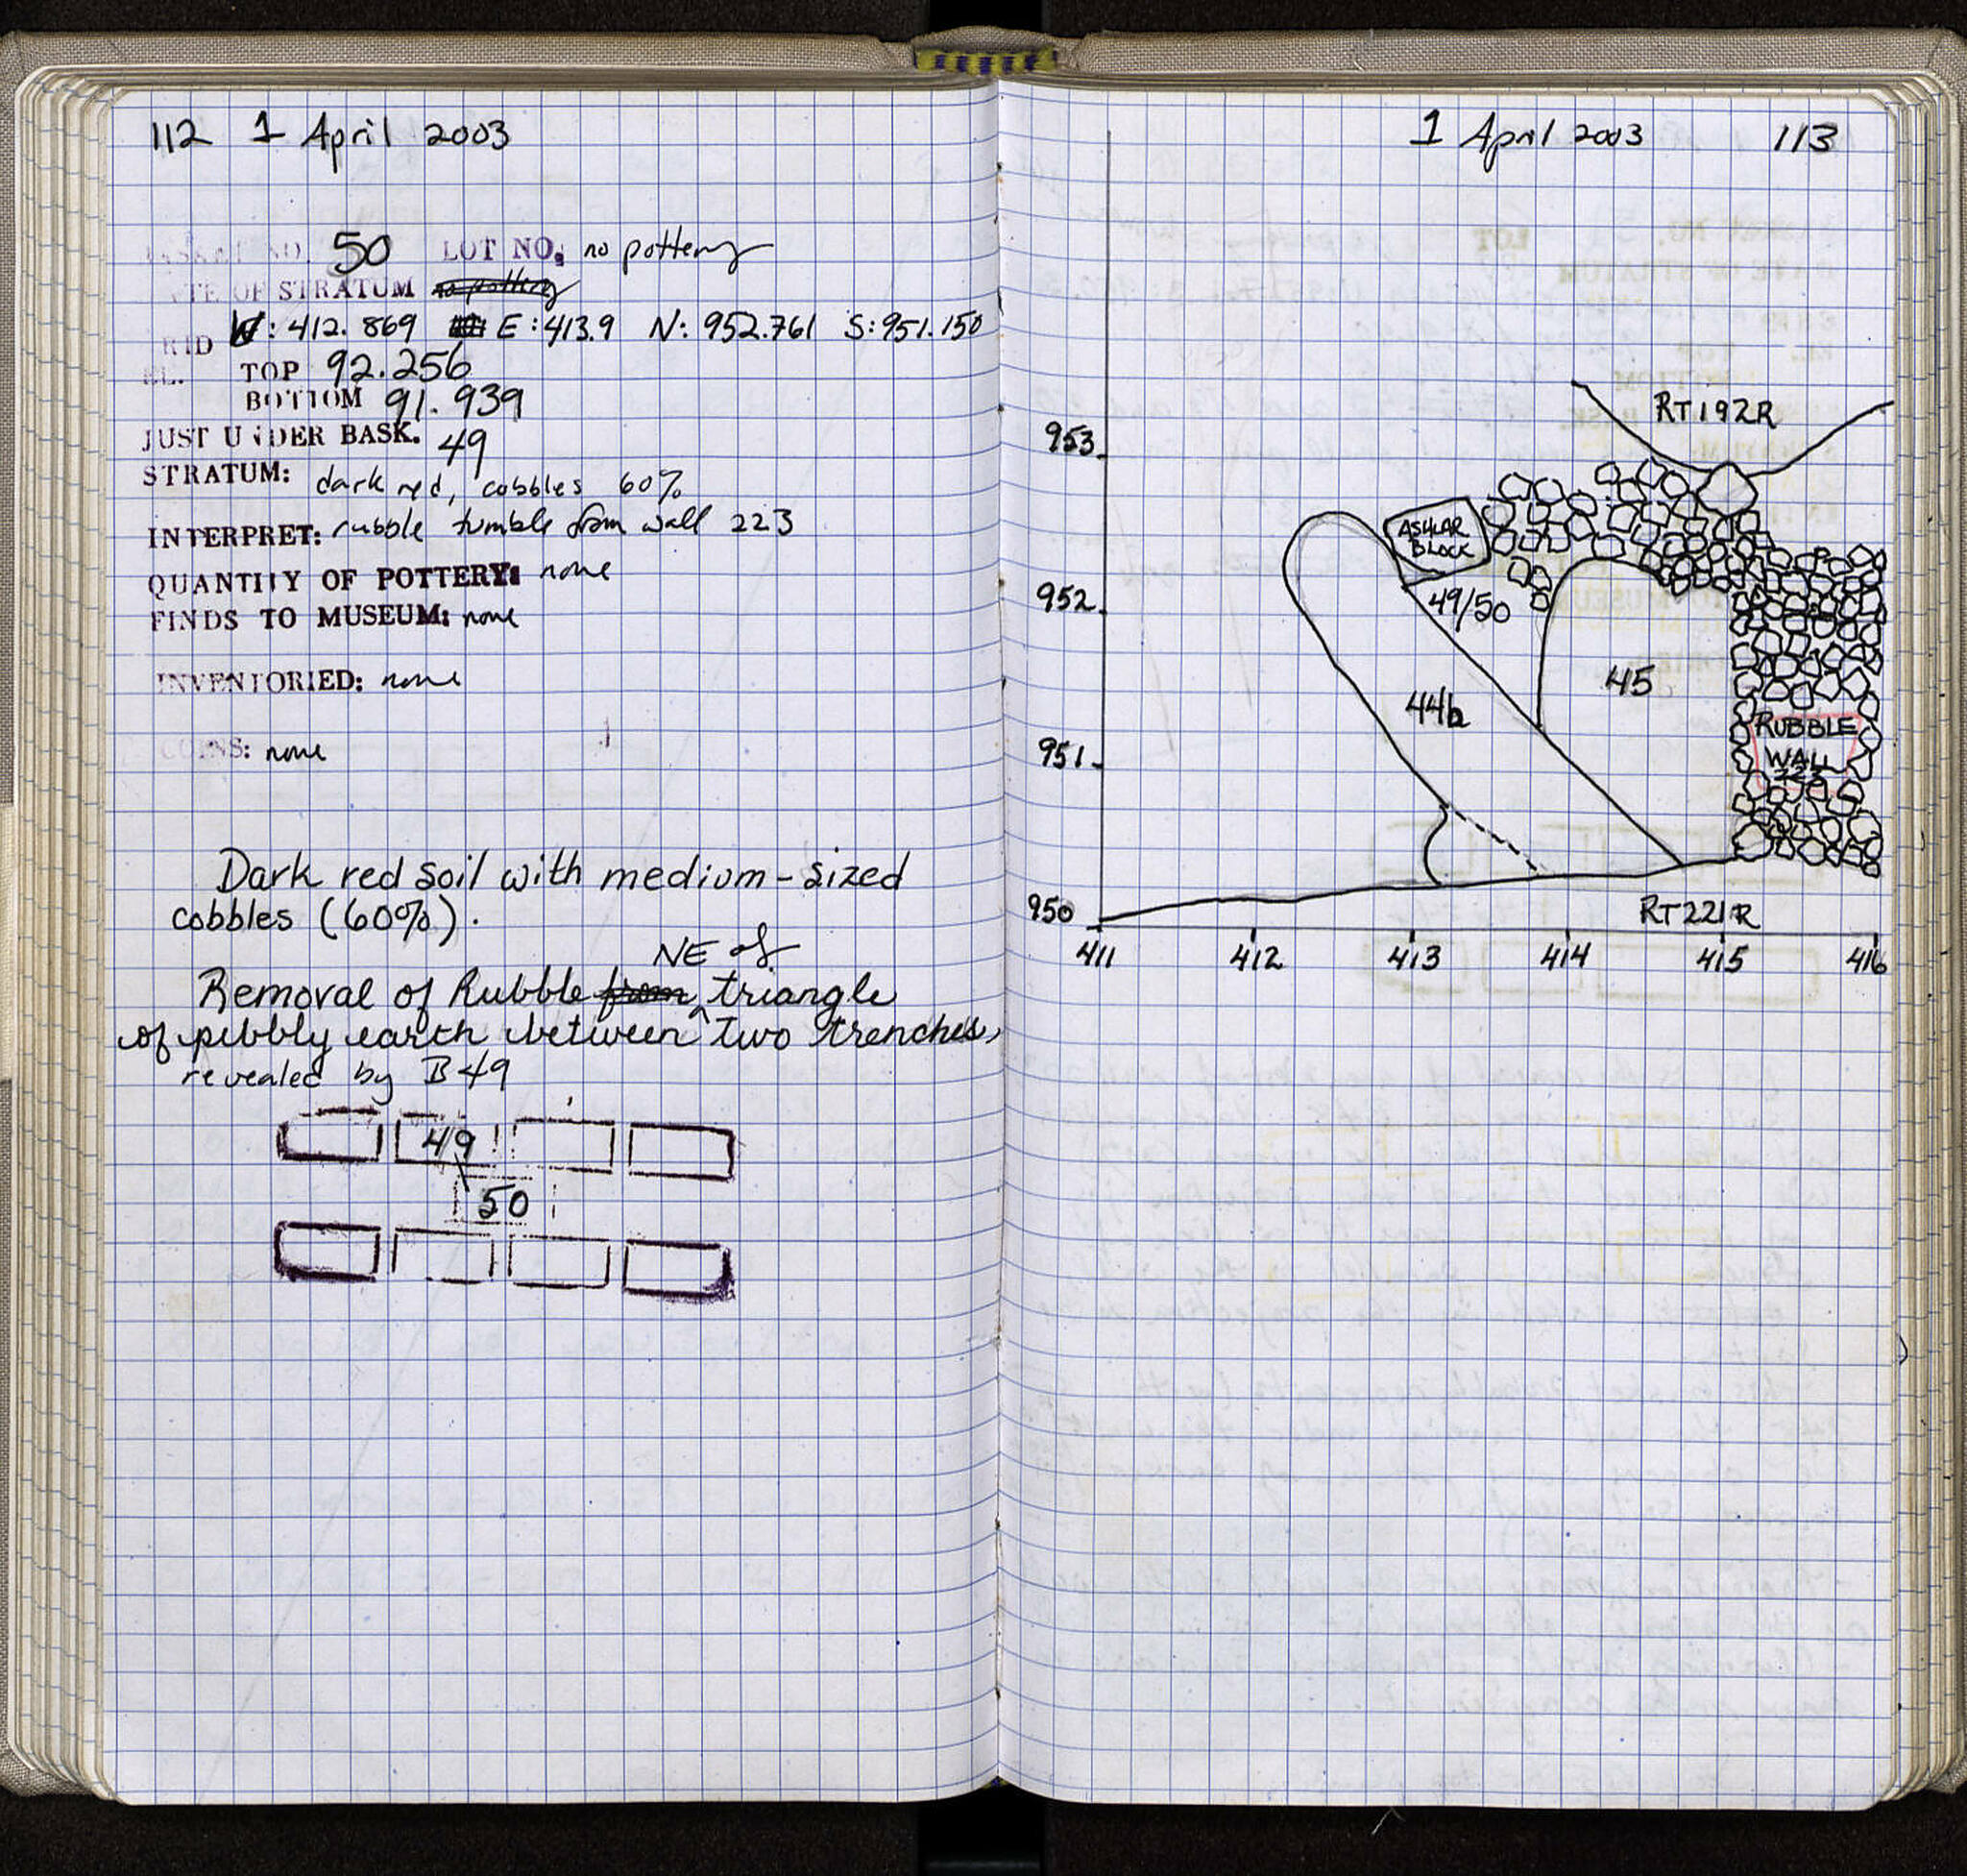 112 1 April 2003
BASKET NO. 50 LOT NO. no pottery
DATE OF STRATUM no pottery
GRID W: 412.869 E: 413.9 N: 952.761 S: 951.150
EL. TOP 92.256
BOTTOM 91.939
JUST UNDER BASK. 49
STRATUM: dark red, cobbles 60%
INTERPRET: rubble tumble from wall 223
QUANTITY OF POTTERY: none
FINDS TO MUSEUM: none
INVENTORIED: none
COINS: none
Dark red soil with medium-sized
cobbles (60%).
NE of
Removal of Rubble from ^ triangle
of pebbly earth between two trenches,
revealed by B49
49
50
1 April 2003 113
RT192R
953
ASHLAR
BLOCK
952
49/50
45
44b
RUBBLE
WALL
223
951
950
RT221R
411 412 413 414 415 416